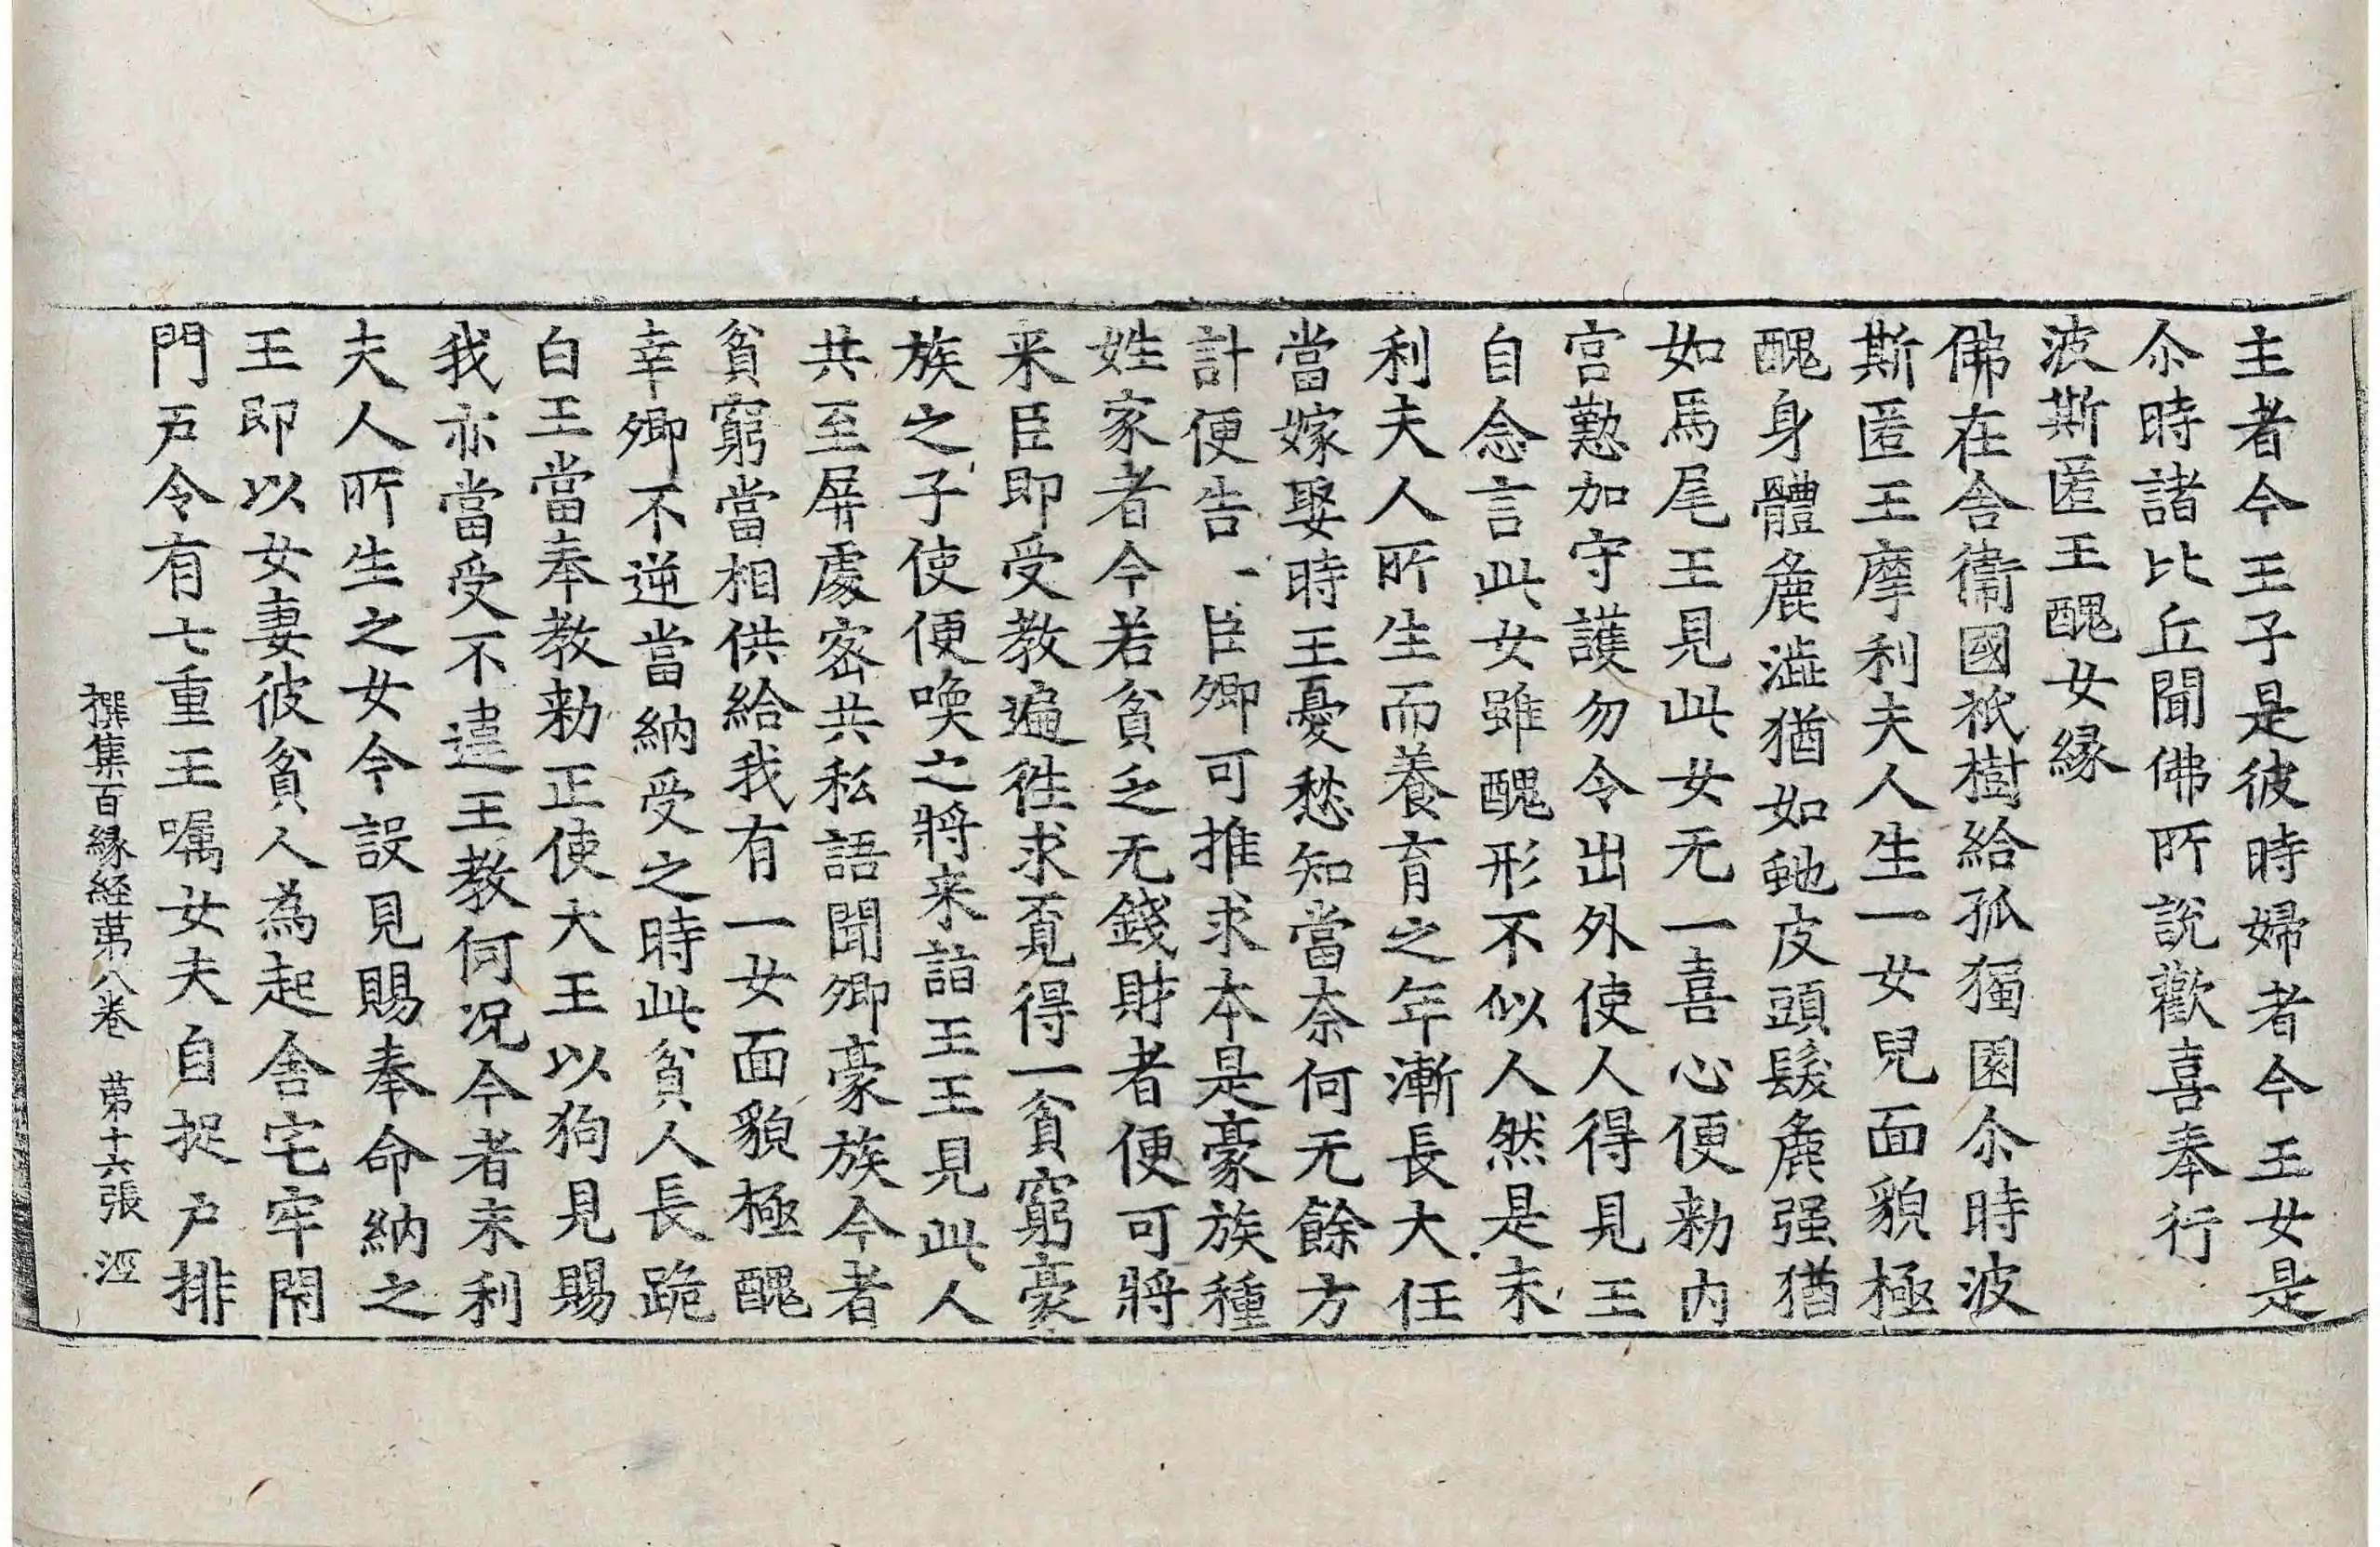 主者今王子是彼時婦者今王女是
尒時諸比丘聞佛所說歡喜奉行
波斯匿王醜女縁
佛在舎衞國祇樹給孤獨園尒時波
斯匿王摩利夫人生一女兒面貌極
醜身體麁澁猶如虵皮頭髮麁强猶
如馬尾王見此女无一喜心便勑内
宫懃加守護勿令出外使人得見王
自念言此女雖醜形不似人然是末
利夫人所生而養育之年漸長大任
當嫁娶時王憂愁知當奈何无餘方
計便告一臣卿可推求本是豪族種
姓家者今若貧乏无錢財者便可將
来臣即受教遍徃求覔得一貧窮豪
族之子使便喚之將来詣王王見此人
共至屏處宻共私語聞卿豪族今者
貧窮當相供給我有一女面貌極醜
幸卿不逆當納受之時此貧人長跪
白王當奉教勑正使大王以狗見賜
我亦當受不違王教何况今者末利
夫人所生之女今設見賜奉命納之
王即以女妻彼貧人為起舎宅牢閇
門戶令有七重王嘱女夫自捉戶排
撰集百縁経苐八卷 苐十六張 𢀖